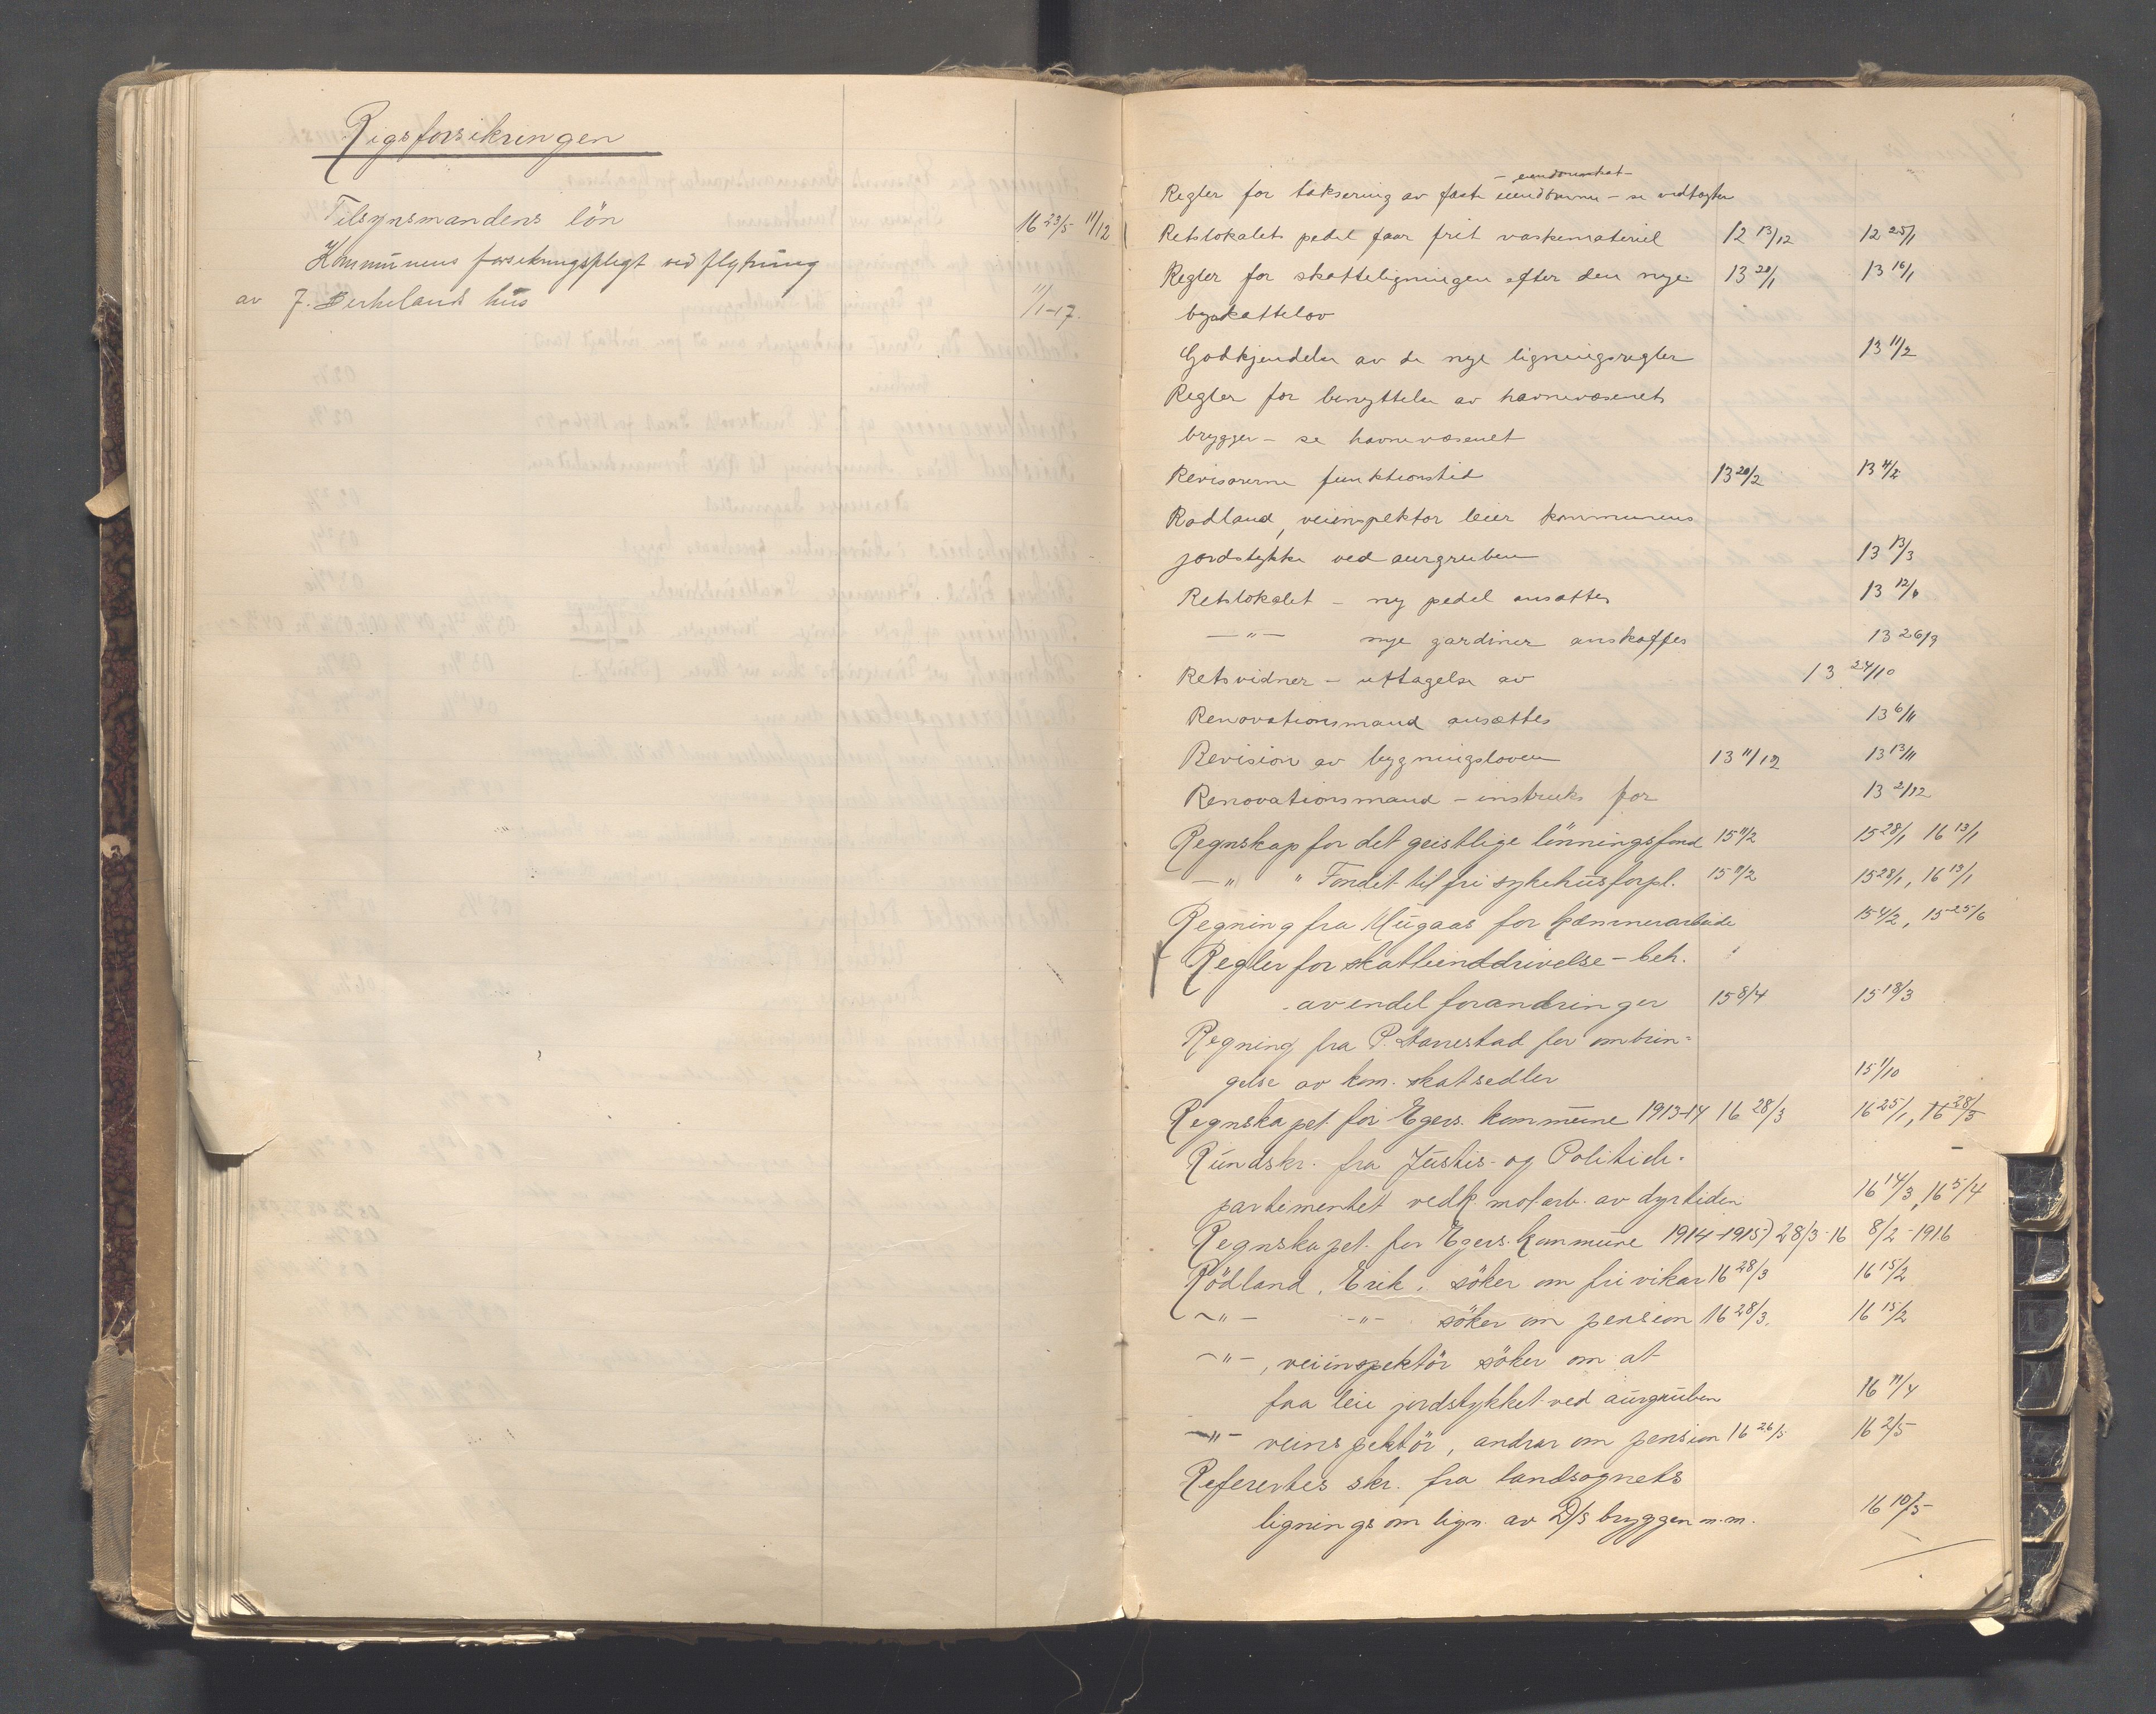 Rigsforsikringen
Tilsynsmandens lön 16 23/5 11/12
Kommunens forsikringspligt ved flytning
av J. Berkelands hus 11/1-17.
Regler for taksering av faste eiendomme - se vedtægter
Retslokalets pedel faar frit vaskemateriel 12 13/12 12 25/1
Regler for skatteligningen efter den nye 13 20/1 13 16/1
byskattelov
Godkjendelse av de nye ligningsregler 13 11/2
Regler for benyttelse av havnevæsenets
brygger - se havnevæsenet
Revisorerne funktionstid 13 20/2 13 4/2
Rødland, veiinspektor leier kommunens
jordstykke ved aurgruben 13 13/3
Retslokalet - ny pedel ansættes 13 12/6
-"- nye gardiner anskaffes 13 26/9
Retsvidner - uttagelse av 13 24/10
Renovationsmand ansættes 13 6/11
Revision av bygningsloven 13 11/12 13 13/11
Renovationsmand - instruks for 13 2/12
Regnskap for det geistlige lönningsfond 15 11/2 15 28/1 16 13/1
-" " Fondet til fri sykehusforpl. 15 11/2 15 28/1, 16 13/1
Regning fra Mugaas for kæmnerarbeide 15 4/2, 15 25/6
Regler for skatteinddrivelse - beh.
av endel forandringer 15 8/4 15 18/3
Regning fra P. Stavrestad for ombrin=
gelse av kom. skatsedler 15 1/10
Regnskapet for Egers. kommune 1913-14 16 28/3 16 25/1, 16 28/3
Rundskr. fra Justis- og Politide-
partementet vedk. motarb. av dyrtiden 16 14/3, 16 5/4
Regnskapet for Egers. kommune 1914-1915) 28/3-16 8/2-1916
Rödland, Erik, söker om fri vikar 16 28/3 16 15/2
-"- -"- söker om pension 16 28/3. 16 15/2
-"-, veiinspektör söker om at
faa leie jordstykket ved aurgruben 16 11/4
-"- veinspektör, andrar om pension 16 26/5 16 2/5
Referertes skr. fra landsognets
lignings om lign. av D/S bryggen m.m. 16 10/5